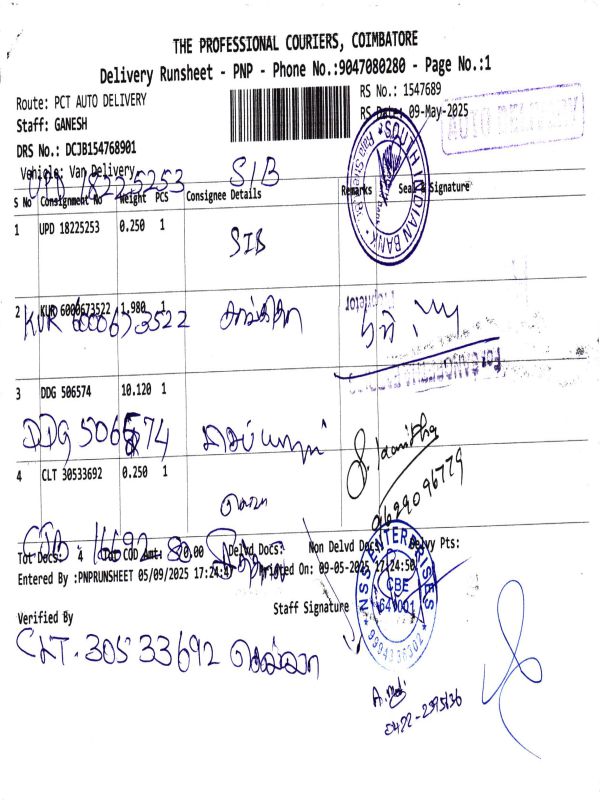 THE PROFESSIONAL COURIERS, COIMBATORE
Delivery Runsheet - PNP - Phone No.:9047080280 - Page No.:1
Route: PCT AUTO DELIVERY
RS No.: 1547689
Staff: GANESH
RS Date: 09-May-2025
AUTO DELIVERY
DRS No.: DCJB154768901
Vehicle: Van Delivery
UPD 18225253 SIB
SOUTH INDIAN BANK
S No Consignment No Weight PCS Consignee Details Remarks Seal & Signature
1 UPD 18225253 0.250 1
SIB
2 KUR 6000673522 1.980 1
KUR 6000673522
Proprietor
3 DDG 506574 10.120 1
DDG 506574
4 CLT 30533692 0.250 1
9629096779
CJB 16692
Tot Docs: 4 Top COD Amt: 0.00 Delvd Docs: Non Delvd Docs: Delvy Pts:
Entered By :PNPRUNSHEET 05/09/2025 17:24:47 Printed On: 09-05-2025 17:24:50
NSS ENTERPRISES
CBE
641001
9994236302
Verified By
Staff Signature
CLT. 30533692
0422-2395136